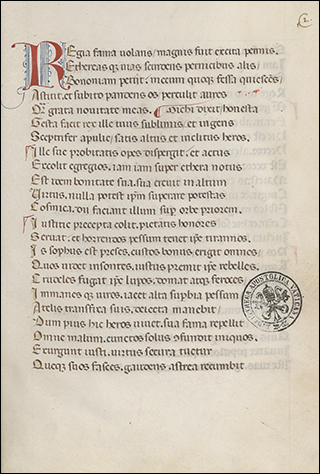 Regia fama volans, magnis fuit excita pennis.
Ethereas
pernicibus alis
petiit. mecum quoque fessa quiescens
Astitit. et subito
os perculit aures
grata novitate meas. Michi dixit honesta
Gesta facit rex ille tuus sublimis. et ingens
Sceptrifer apulie. satis altus et inclitus heros.
Ille sue probitatis opes dispergit. et actus
Excolit egregios. iam iam super ethera notus
Est rerum bonitate sua. sua crevit in altum
Virtus. nulla potest ipsum superare potestas
Cosmica.
faciant illum super orbe priorem.
Iustitie precepta colit. pietatis honores
Servat. et horrendos pessum tenet ipse tirannos.
Is sophus est preses. custos bonus. erigit omnes
Quos videt insontes. iustus premit ipse rebelles.
Crudeles fugat ipse lupos. domat atque feroces
Immanes
viros. iacet alta superbia pessum
transfixa suis.
manebit
Dum pius hic heros vivet. sua fama repellit
Omne malum. cunctos solus
iniquos.
Exurgunt iusti. virtus secura tuetur
Queque suos fasces. gaudens astrea recumbit